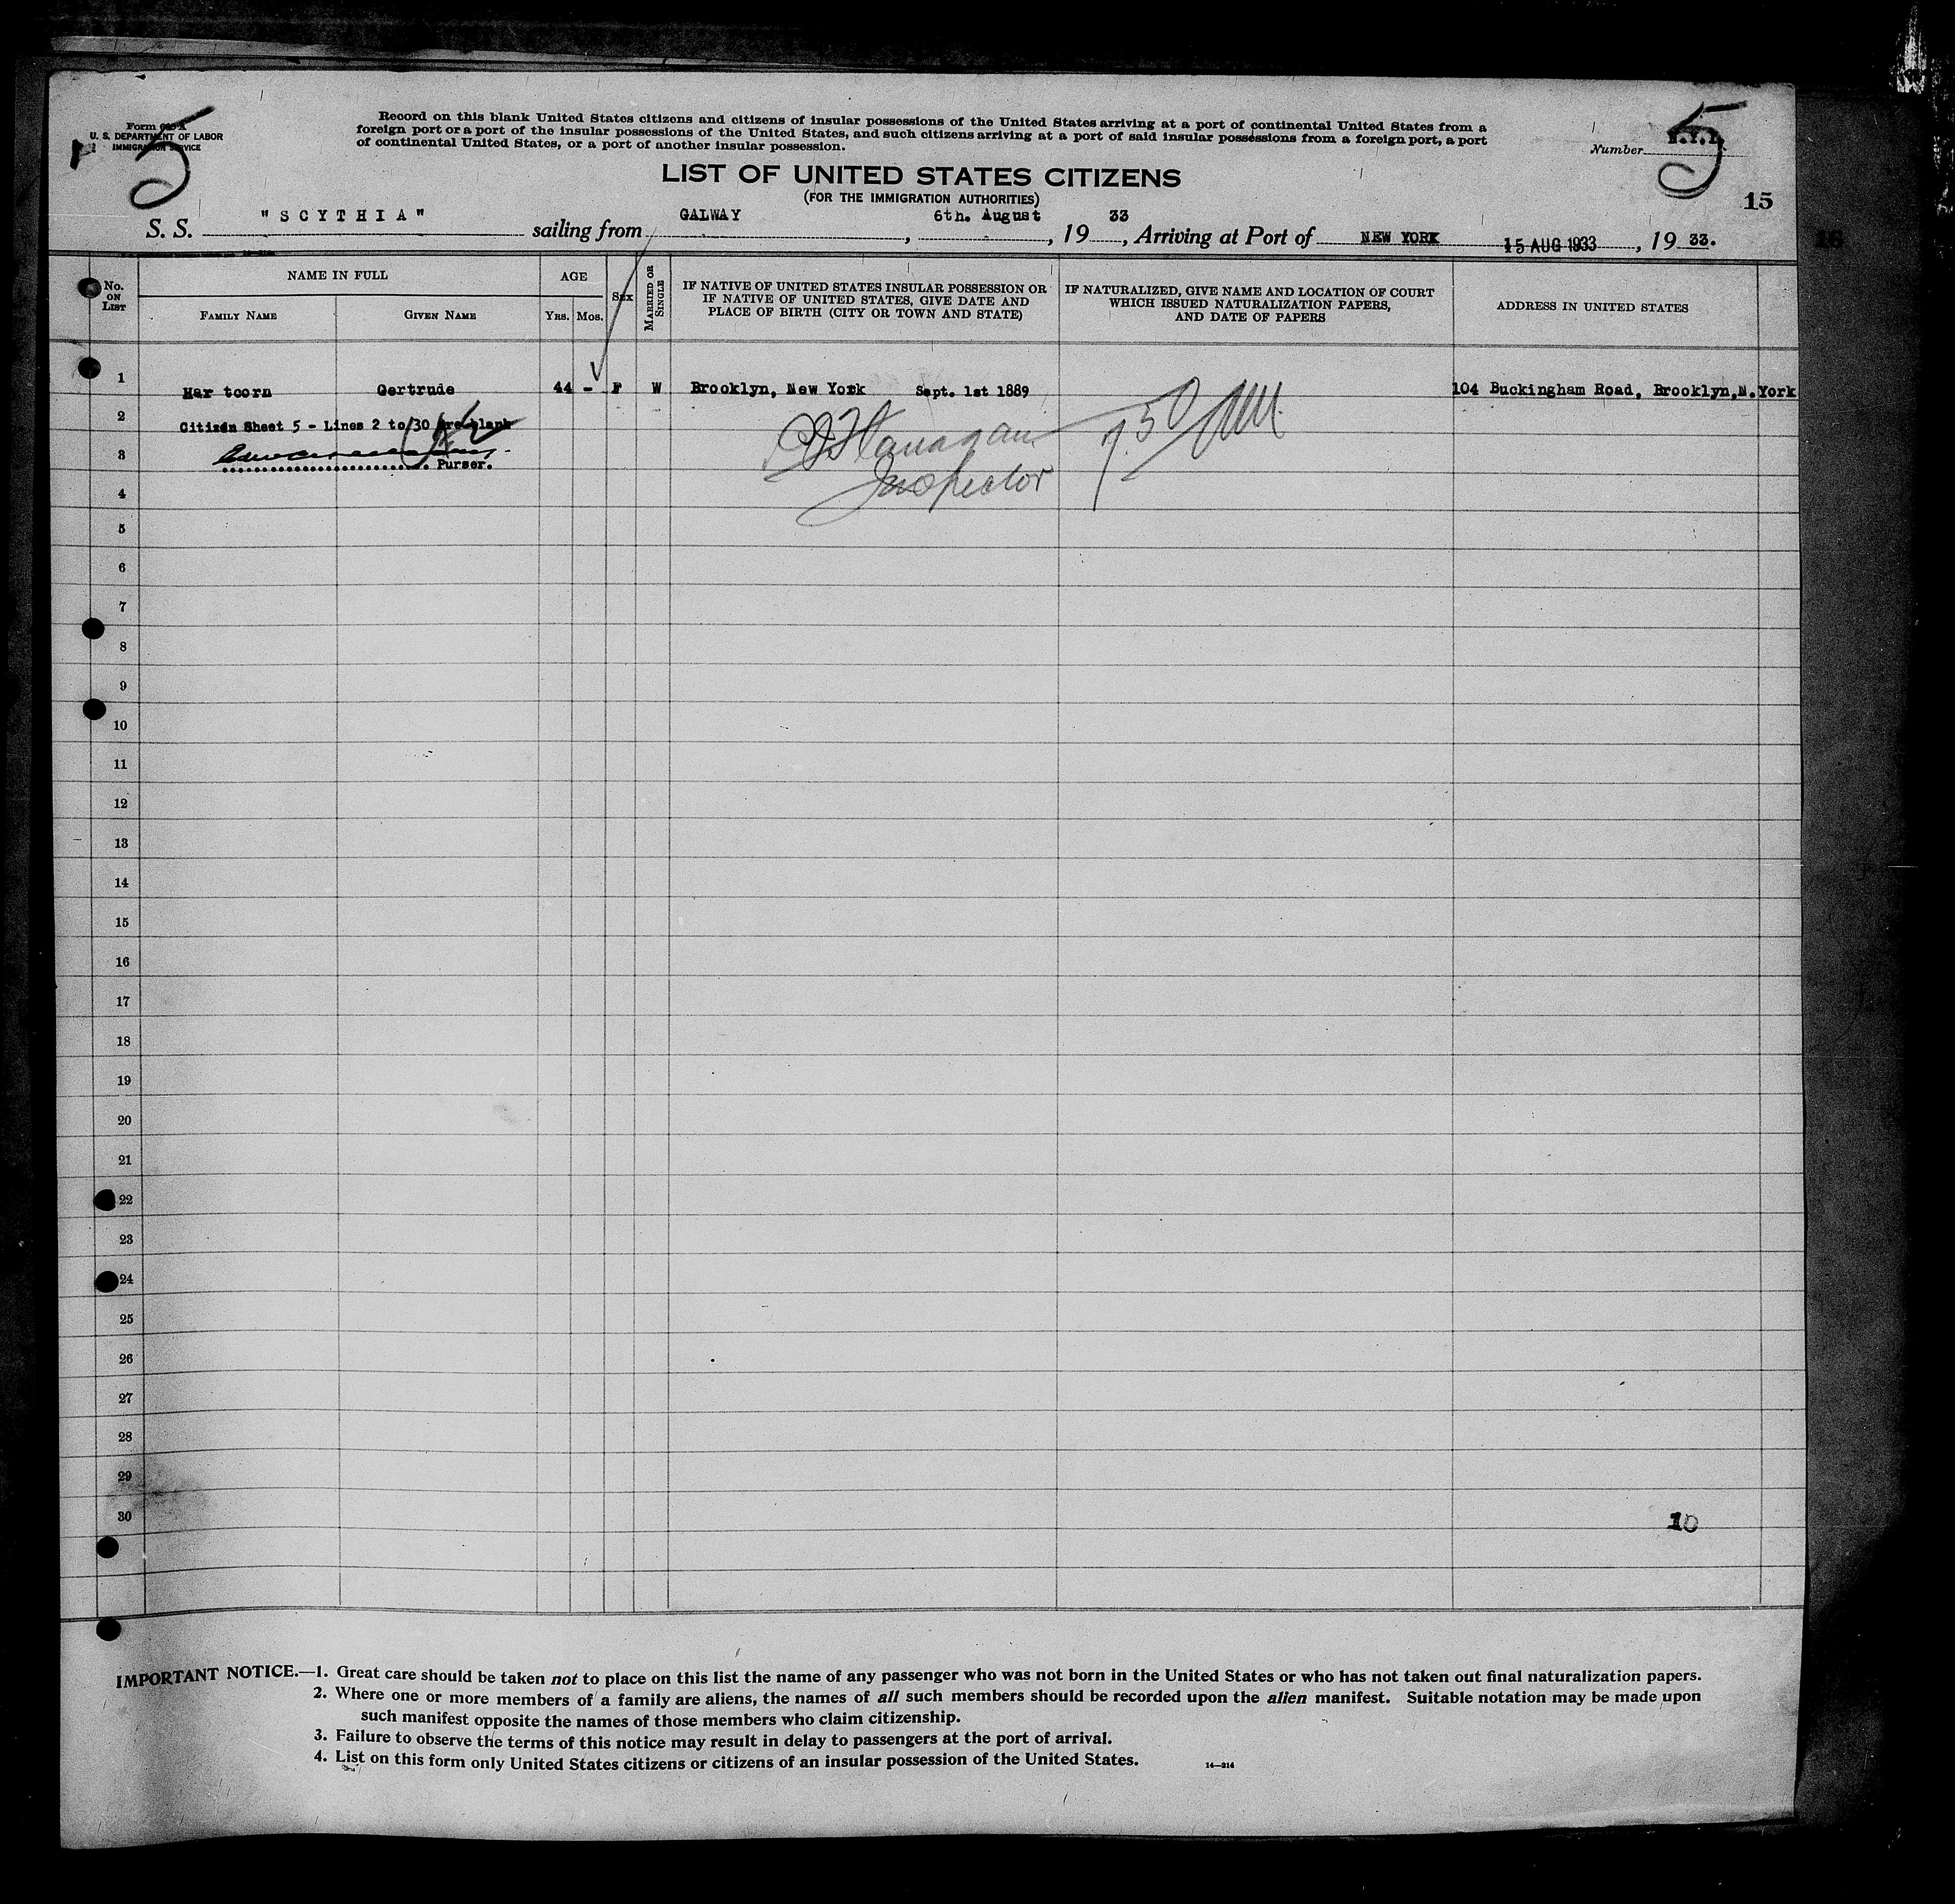 Form 630 A
U. S. DEPARTMENT OF LABOR
IMMIGRATION SERVICE
5
Record on this blank United States citizens and citizens of insular possessions of the United States arriving at a port of continental United States from a
foreign port or a port of the insular possessions of the United States, and such citizens arriving at a port of said insular possessions from a foreign port, a port
of continental United States, or a port of another insular possession.
5
Number
LIST OF UNITED STATES CITIZENS
(FOR THE IMMIGRATION AUTHORITIES)
15
S. S. "SCYTHIA" sailing from GALWAY, 6th. August, 19 33, Arriving at Port of NEW YORK 15 AUG 1933, 19 33.
No. ON LIST
NAME IN FULL
FAMILY NAME
GIVEN NAME
AGE
YRS.
MOS.
SEX
MARRIED OR SINGLE
IF NATIVE OF UNITED STATES INSULAR POSSESSION OR
IF NATIVE OF UNITED STATES, GIVE DATE AND
PLACE OF BIRTH (CITY OR TOWN AND STATE)
IF NATURALIZED, GIVE NAME AND LOCATION OF COURT
WHICH ISSUED NATURALIZATION PAPERS,
AND DATE OF PAPERS
ADDRESS IN UNITED STATES
1 Har toorn Gertrude 44 - F W Brooklyn, New York Sept. 1st 1889 104 Buckingham Road, Brooklyn,N.York
2 Citizen Sheet 5 - Lines 2 to 30 are blank
Flanagan
3 Purser.
Inspector
4
5
6
7
8
9
10
11
12
13
14
15
16
17
18
19
20
21
22
23
24
25
26
27
28
29
30
10
IMPORTANT NOTICE.—1. Great care should be taken not to place on this list the name of any passenger who was not born in the United States or who has not taken out final naturalization papers.
2. Where one or more members of a family are aliens, the names of all such members should be recorded upon the alien manifest. Suitable notation may be made upon
such manifest opposite the names of those members who claim citizenship.
3. Failure to observe the terms of this notice may result in delay to passengers at the port of arrival.
4. List on this form only United States citizens or citizens of an insular possession of the United States.
14—214